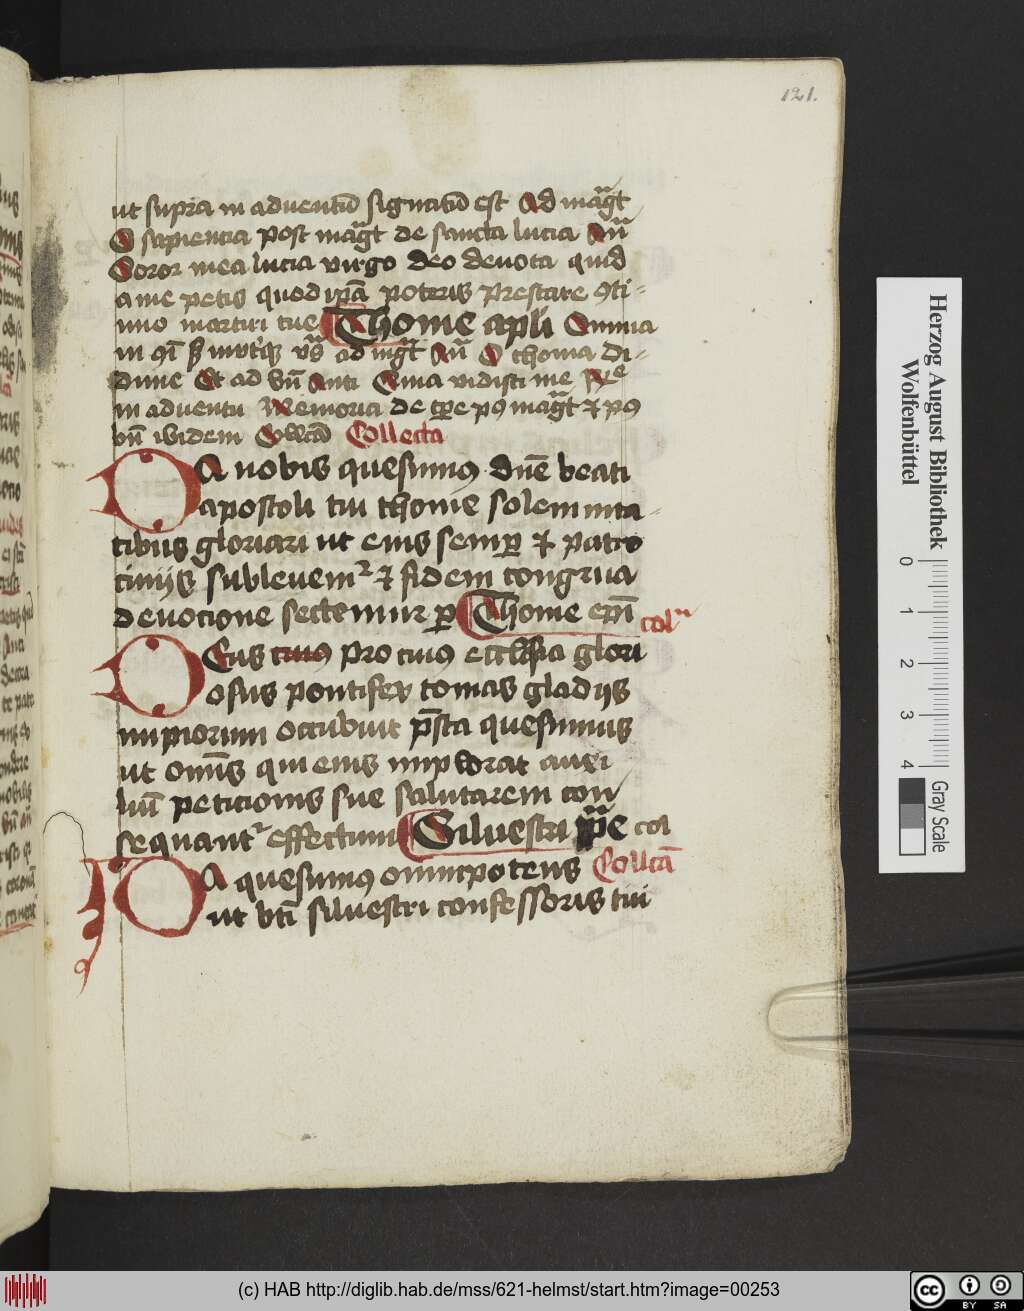 121.
ut supra in adventū signatū est Ad mag̃t
O sapiencia post mag̃t de sancta lucia An̄
Soror mea lucia virgo deo devota quid
a me petis quod ip̄ā poteris prestare 9ti-
nuo martiri tue Thome apl̄i Omnia
ad mg̃t An̄ O thoma di-
dime Et ad bn̄ Anti Quia vidisti me
in adventu Memoria de tp̄e p9 mag̃t ⁊ p9
bn̄ ibidem Collecta
DA nobis quesumus dn̄e beati
apostoli tui thome solemnita-
tibus gloriari ut eius semꝑ ⁊ patro
cinijs sublevemr ⁊ fidem congrua
devocione sectemur ꝑ Thome ep̄i colta
DEus cuius pro cuius ecclesia glori
osus pontifex tomas gladijs
impiorum occubuit p̄sta quesumus
ut omn̄s qui eius implorat auxi
liū peticionis sue salutarem con
sequantr effectum Siluestri pp̄e col
Collcā
DA quesumus omnipotens
ut bt̄i silvestri confessoris tui
Herzog August Bibliothek
Wolfenbüttel
0 1 2 3 4
Gray Scale
(c) HAB http://diglib.hab.de/mss/621-helmst/start.htm?image=00253
cc BY SA